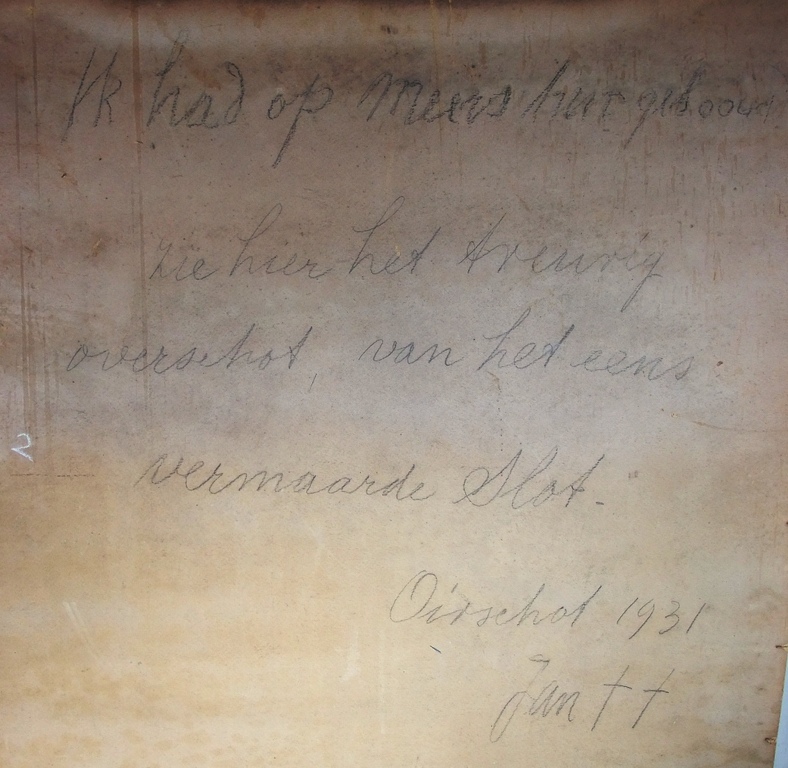 Ik had op mens hut geboowd
zie hier het treurig
overschot, van het eens
vermaarde Slot.
2
Oirschot 1931
Jan † †